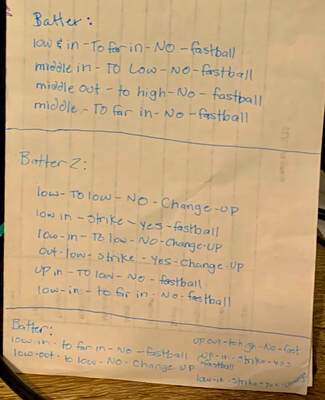 Batter:
low & in - To far in - NO - fastball
middle in - TO Low - NO - fastball
middle out - to high - No - fastball
middle - To far in - No - fastball
Batter 2:
low - To low - NO - Change-UP
low in - strike - yes - fastball
low-in - To low - NO - Change-UP
out-low - strike - yes - Change-UP
UP in - To low - No - fastball
low-in - to far in - No - fastball
Batter:
low in - to far in - No - fastball
low-out - to low - No - Change UP
UP out - to high - No - fast
UP - in - Strike - yes
fastball
low-in - Strike - yes